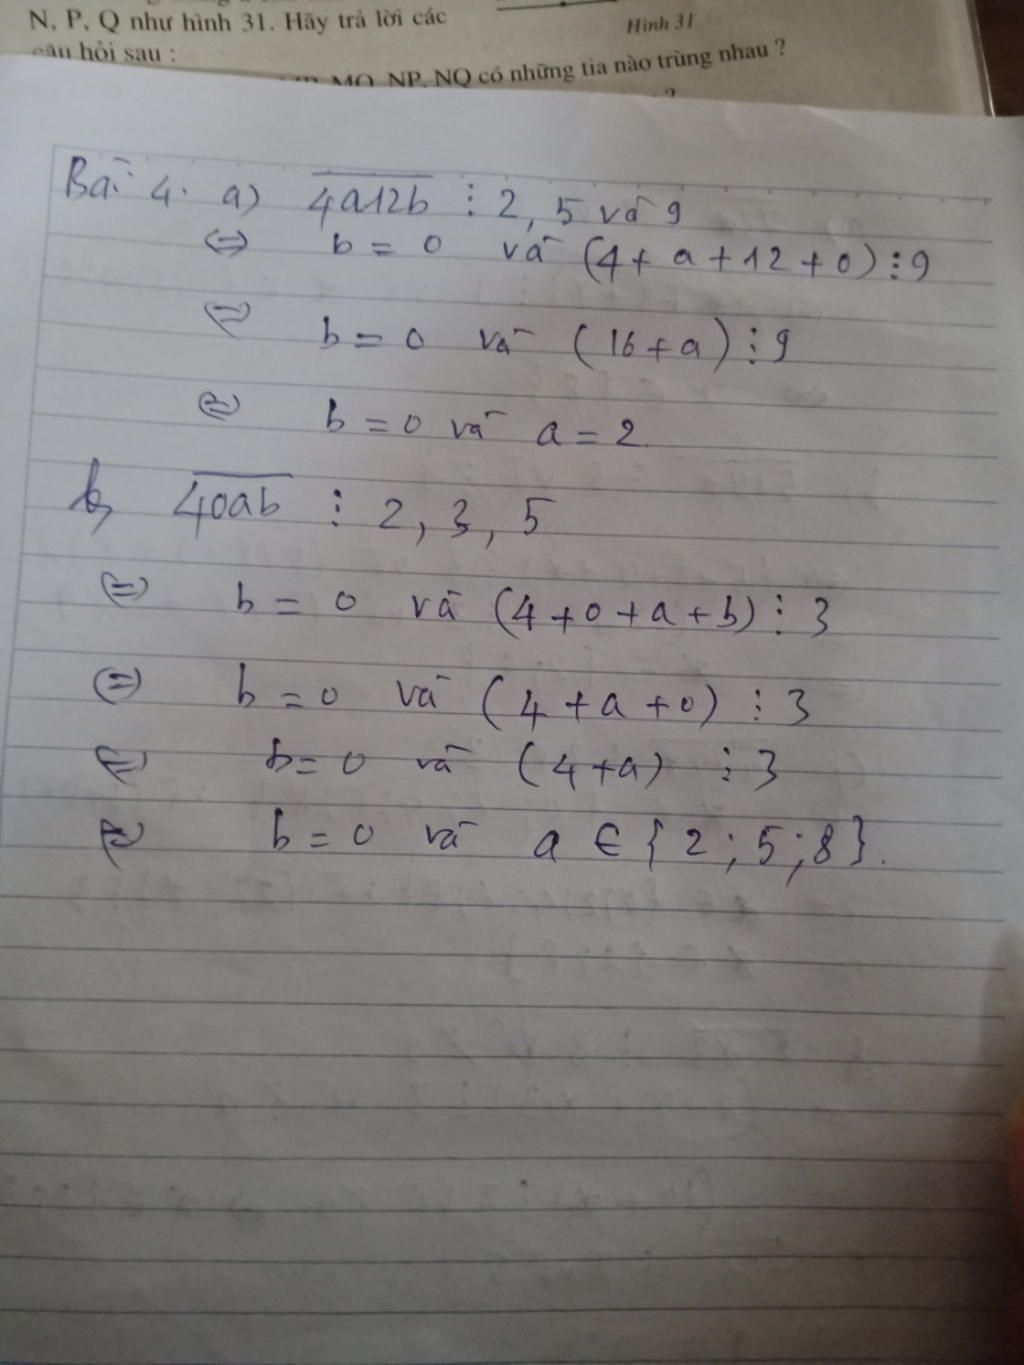 N, P, Q như hình 31. Hãy trả lời các
Hình 31
câu hỏi sau :
MQ, NP, NQ có những tia nào trùng nhau ?
?
Bài 4. a) 4a12b ⋮ 2, 5 và 9
⇔ b = 0 và (4 + a + 12 + 0) ⋮ 9
⇔ b = 0 và (16 + a) ⋮ 9
⇔ b = 0 và a = 2.
b, 40ab ⋮ 2, 3, 5
⇔ b = 0 và (4 + 0 + a + b) ⋮ 3
⇔ b = 0 và (4 + a + 0) ⋮ 3
⇔ b = 0 và (4 + a) ⋮ 3
⇔ b = 0 và a ∈ { 2 ; 5 ; 8 }.